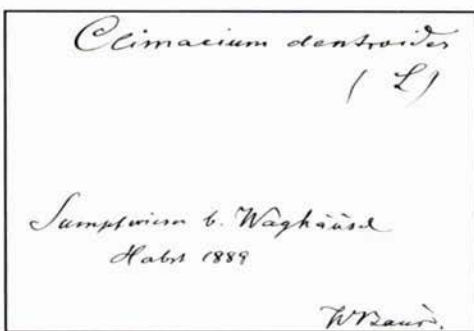 Climacium dentroides
( L )
Sumpfwiesen b. Waghäusel
Habst 1889
WBaur.